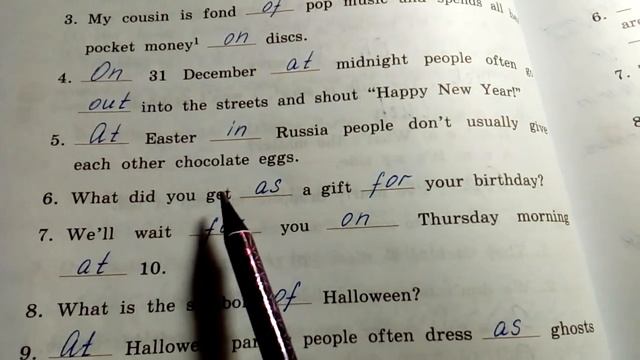 3. My cousin is fond of pop music and spends all
pocket money¹ on discs.
6.
4. On 31 December at midnight people often
7.
out into the streets and shout "Happy New Year!"
5. At Easter in Russia people don't usually give
each other chocolate eggs.
6. What did you get as a gift for your birthday?
7. We'll wait you on Thursday morning
at 10.
8. What is the of Halloween?
9. At people often dress as ghosts